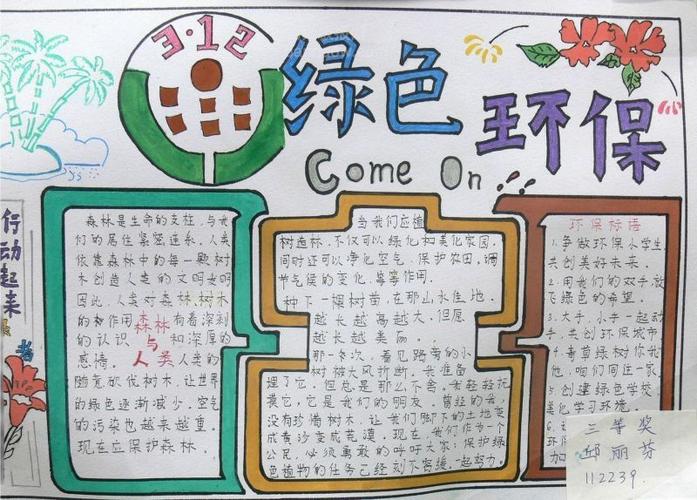 3·12
绿色
环保
Come On
行动起来
森林是生命的支柱,与我
们的居住紧密连系。人类
依靠森林中的每一颗树
木创造人类的文明发明
因此,人类对森林,树木
的和作用 森林 有着深刻
的认识 与 和深厚的
感情。人类 人类的
随意砍伐树木,让世界
的绿色逐渐减少。空气
的污染也越来越重。
现在应保护森林。
当我们应植
树造林,不仅可以绿化和美化家园,
同时还可净化空气,保护农田。调
节气候的变化,等等作用。
种下一棵树苗,在那山水佳地。
越长越高越大,但愿
越长越美丽。
那一次,看见路旁的小
树被大风折断。我准备
理了它,但总是那么不舍。我轻轻托
装它,它是我们的朋友,曾经的我,
没有珍惜树木,让我们脚下的土地变
成黄沙变成荒漠。现在,我们作为一个
公民,必须勇敢的呼吁大家,保护绿
色植物的任务已经刻不容缓,一起努力。
环保标语
1.争做环保小学生
共创美好未来。
2.用我们的双手放
飞绿色的希望。
3.大手,小手一起动
手,共创环保城市
4.青草绿树你我
他,咱们同住一家
5.创建绿色学校
美化学习环境。
三等奖
邱丽芬
112239.